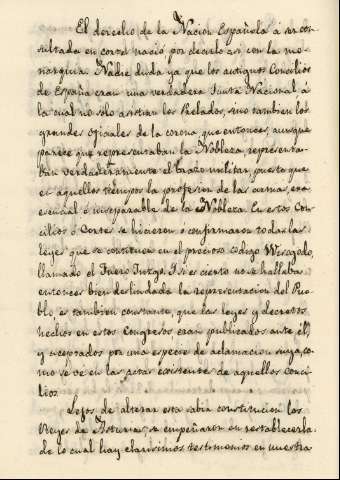 El derecho de la Nacion Española a ser con-
sultada en cortes nació, por decirlo así con la mo-
narquia. Nadie duda ya que los antiguos Concilios
de España eran una verdadera Junta Nacional á
la cual no sólo asistian los Prelados, sino tambien los
grandes oficiales de la corona, que entonces, aunque
parece que representaban la Nobleza, representa-
ban verdaderamente el brazo militar puesto que
en aquellos tiempos la profesion de las armas, era
esencial é inseparable de la Nobleza. En estos Con-
cilios ó Cortes se hicieron ó confirmaron todas las
leyes que se contienen en el precioso codigo Wisogodo,
llamado el Fuero Juzgo. I si es cierto no se hallaba
entonces bien deslindada la representacion del Pue-
blo, es tambien constante, que las leyes y decretos
hechos en estos Congresos eran publicados ante él,
y aceptados por una especie de aclamacion suya, co-
mo se ve en las actas existentes de aquellos conci-
lios.
Lejos de alterar esta sabia constitucion los
Reyes de Asturias se empeñaron en restablecerla
de lo cual hay clarísimos testimonios en nuestra